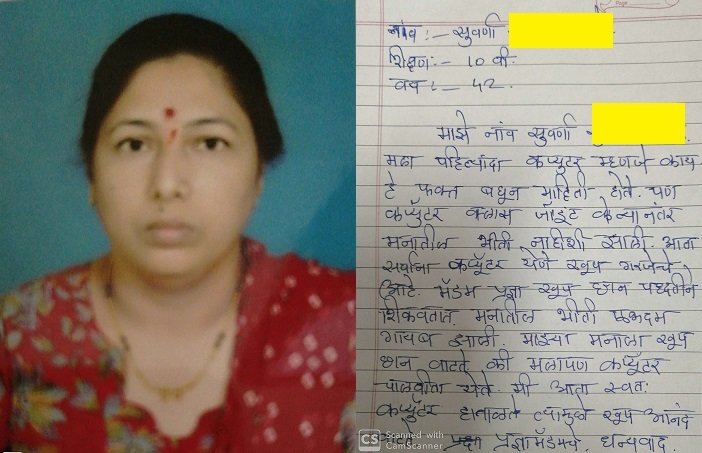 नांव :- सुवर्णा
शिक्षण:- 10 वी.
वय :- 42.
माझे नांव सुवर्णा
मला पहिल्यांदा कंप्युटर म्हणजे काय
हे फक्त बघून माहिती होते. पण
कंप्युटर क्लास जॉइंट केल्यानंतर
मनातील भीती नाहीशी झाली. आता
सर्वांना कंप्युटर येणे खूप गरजेचे
आहे. मॅडम प्रज्ञा खूप छान पध्दतीने
शिकवतात. मनातील भीती एकदम
गायब झाली. माझ्या मनाला खूप
छान वाटते की मलापण कंप्युटर
चालवीता येते. मी आता स्वतः
कंप्युटर हाताळते त्यामुळे खूप आनंद
प्रज्ञामॅडमचे. धन्यवाद.
CS Scanned with
CamScanner
Page